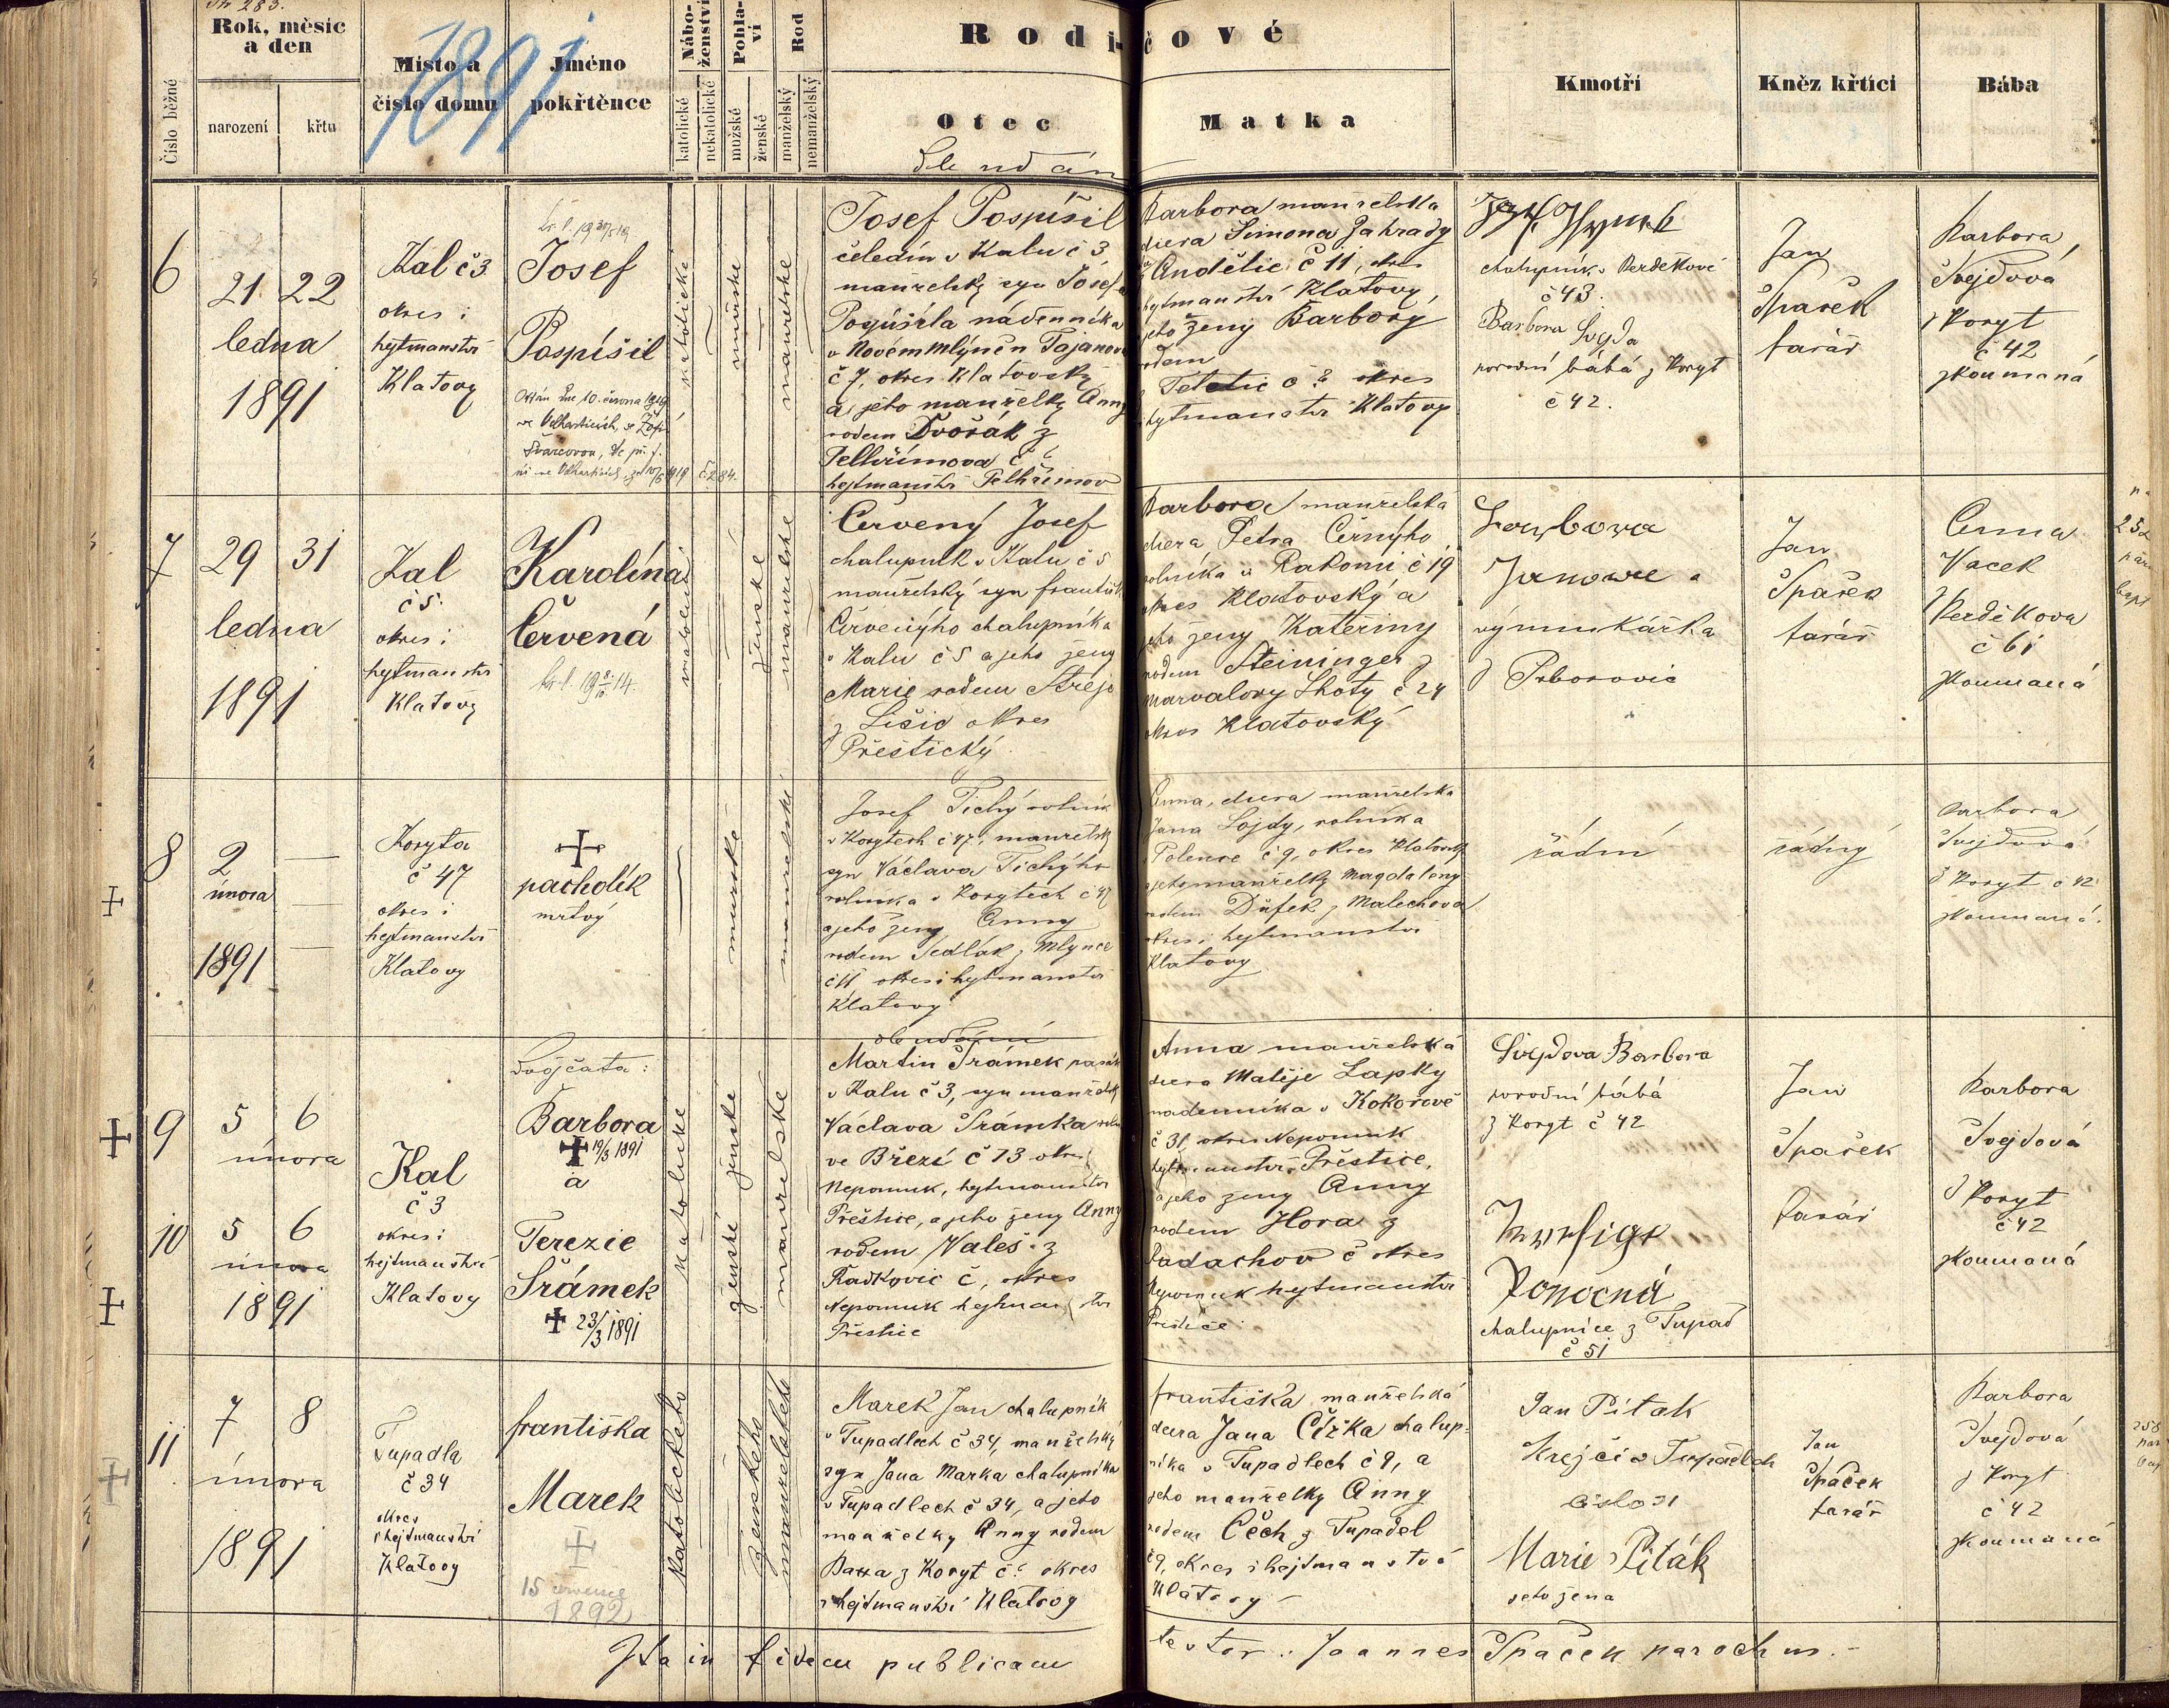 Rok, měsíc a den
narození
křtu
Číslo běžné
Místo a číslo domu
Jméno pokřtěnce
Nábo-ženství
katolické
nekatolické
Pohla-ví
mužské
ženské
Rod
manželský
nemanželský
Rodi-čové
Otec
Matka
Kmotři
Kněz křtící
Bába
1891
6
21 22
ledna
1891
Kal č 3
okres i
hejtmanství
Klatovy
Josef
Pospíšil
katolické
mužské
manželské
Josef Pospíšil
čeledín v Kalu č 3
manželský syn Josefa
Pospíšila nádenníka
v Novém Mlýně n Tajanova
č 7, okres Klatovský
a jeho manželky Anny
rodem Dvořák z
Pelhřimova č
hejtmanství Pelhřimov
Barbora manželská
dcera Šimona Zahrady
Andělic č 11, okres
hejtmanství Klatovy,
jeho ženy Barbory
rodem
Tetětic č ? okres
hejtmanství Klatovy
chalupník v Perdekově
č 43.
Barbora Svejda
porodní bába z Koryt
č 42.
Jan
Špaček
farář
Barbora
Svejdová
z Koryt
č 42
zkoumaná
7
29 31
ledna
1891
Kal
č 5.
okres i
hejtmanství
Klatovy
Karolína
Červená
ženské
manželské
Červený Josef
chalupník v Kalu č 5
manželský syn Františka
Červenýho chalupníka
v Kalu č 5 a jeho ženy
Marie rodem Strejc
z Lišic okres
Přeštický
Barbora manželská
dcera Petra Černýho
rolníka v Rakomi č 19
okres Klatovský a
jeho ženy Kateřiny
rodem Steininger z
Marvalovy Lhoty č 24
okres Klatovský
výminkářka
z Poborovic
Jan
Špaček
farář
Anna
Vacek
z Perdekova
č 61
zkoumaná
8
2
února
1891
Koryta
č 47
okres i
hejtmanství
Klatovy
pacholík
mrtvý
mužské
manželské
Josef Tichý rolník
v Korytech č 47, manželský
syn Václava Tichýho
rolníka v Korytech č 47
a jeho ženy Anny
rodem Sedlák z Mlýnce
č 11, okres i hejtmanství
Klatovy
Anna, dcera manželská
Jana Lojdy, rolníka
v Polence č 9, okres Klatovský
a jeho manželky Magdaleny
rodem Duffek z Malechova
okres i hejtmanství
Klatovy
žádní
žádný
Barbora
Svejdová
z Koryt č 42
zkoumaná.
9
5 6
února
10
5 6
února
1891
Kal
č 3
okres i
hejtmanství
Klatovy
Dvojčata:
Barbora
19/3 1891
a
Terezie
Šrámek
23/3 1891
katolické
ženské ženské
manželské
Martin Šrámek pasák
v Kalu č 3, syn manželský
Václava Šrámka
ve Březí č 13 okres
Nepomuk, hejtmanství
Přeštice, a jeho ženy Anny
rodem Valeš z
Řadkovic č, okres
Nepomuk hejtmanství
Přeštice
Anna manželská
dcera Matěje Lapky
nádenníka v Kokořově
č 31, okres Nepomuk
hejtmanství Přeštice,
a jeho ženy Anny
rodem Hora z
Radachov č okres
Nepomuk hejtmanství
Přeštice
Svejdova Barbora
porodní bába
z Koryt č 42
chalupnice z Tupad
č 51
Jan
Špaček
farář
Barbora
Svejdová
z Koryt
č 42
zkoumaná
11
7 8
února
1891
Tupadla
č 34
okres
i hejtmanství
Klatovy
Františka
Marek
15 července
1892
Katolického
ženského
manželského
Marek Jan chalupník
v Tupadlech č 34, manželský
syn Jana Marka chalupníka
v Tupadlech č 34, a jeho
manželky Anny rodem
z Koryt č okres
i hejtmanství Klatovy
Františka manželská
dcera Jana Čížka chalup-
níka v Tupadlech č 9, a
jeho manželky Anny
rodem Čech z Tupadel
č 9, okres i hejtmanství
Klatovy
Jan Piták
Krejčí v Tupadlech
číslo 31
Marie Piták
jeho žena
Jan
Špaček
farář
Barbora
Svejdová
z Koryt
č 42
zkoumaná
Ita in fidem publicam testor: Joannes Špaček parochus.